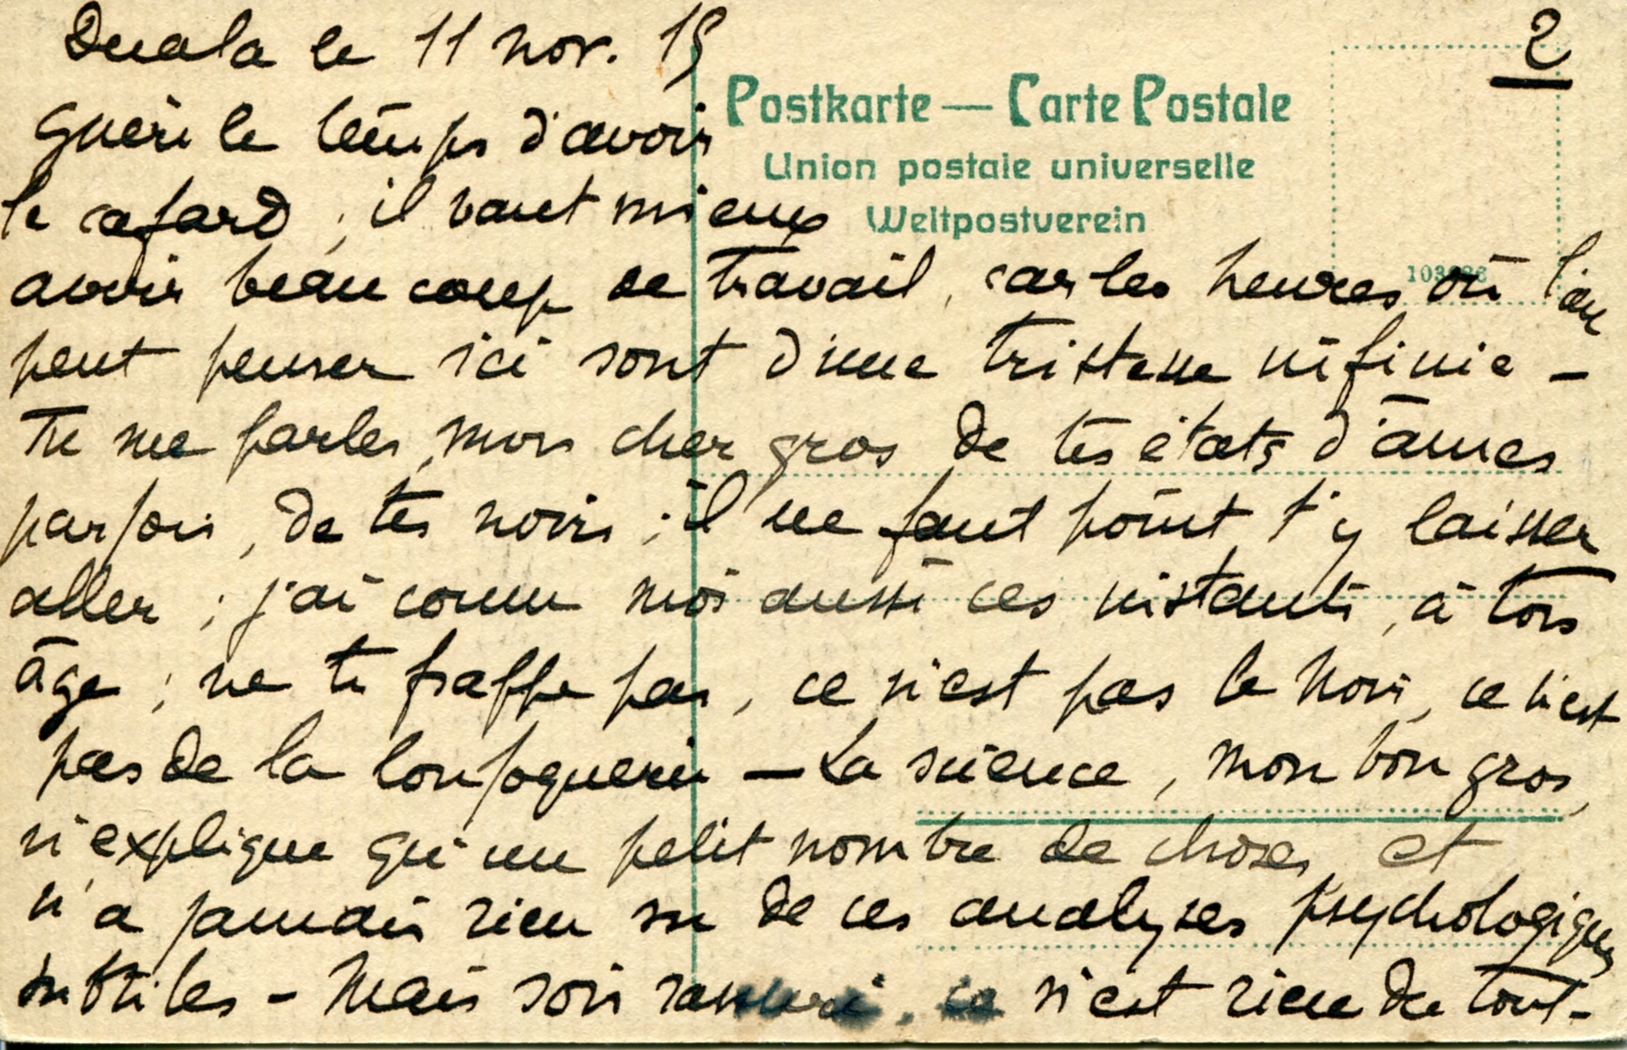 2
Duala le 11 nov. 15
Postkarte — Carte Postale
Union postale universelle
Weltpostverein
guère le temps d'avoir
le cafard ; il vaut mieux
avoir beaucoup de travail, car les heures où l'on
peut penser ici sont d'une tristesse infinie -
Tu me parles, mon cher gros de tes états d'âmes
parfois, de tes noirs ; il ne faut point t'y laisser
aller ; j'ai connu moi aussi ces instants, à ton
âge ; ne te frappe pas, ce n'est pas le noir, ce n'est
pas de la loufoquerie — La science, mon bon gros,
n'explique qu'un petit nombre de choses et
n'a jamais rien su de ces analyses psychologiques
subtiles - Mais sois rassuré, ce n'est rien du tout -